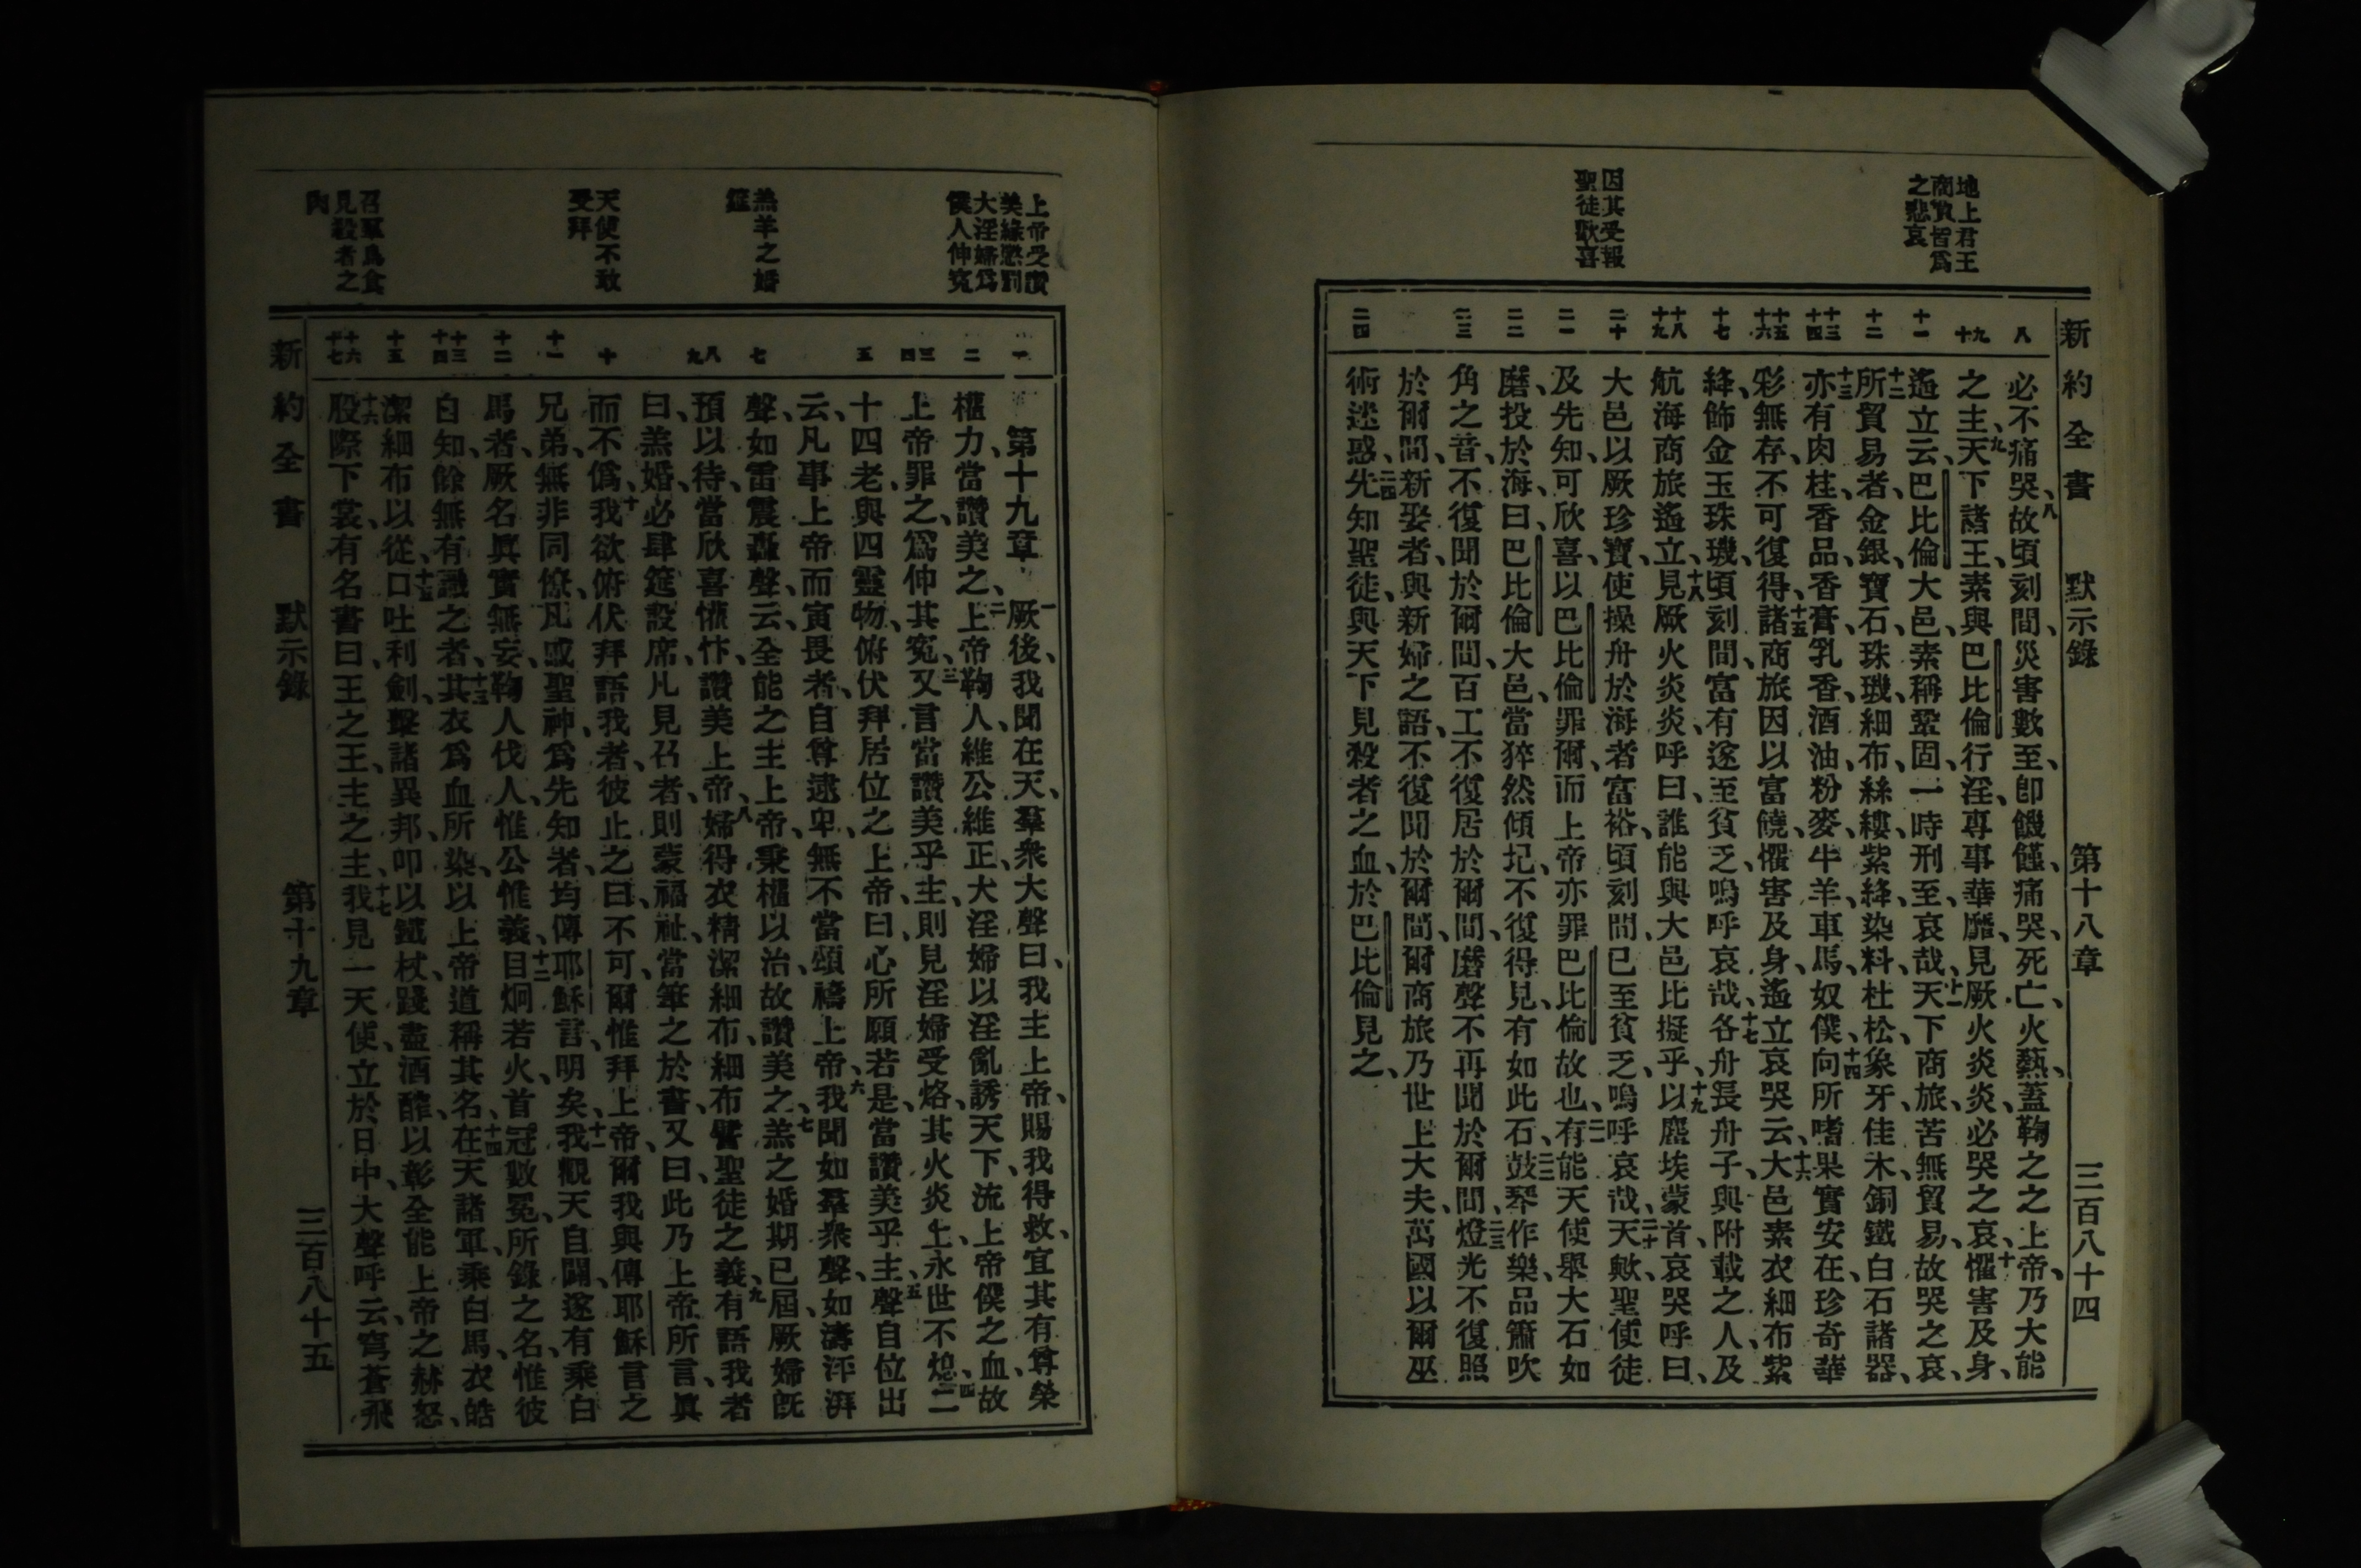 新約全書 默示錄 第十八章 三百八十四
地上君王
商賈皆爲
之悲哀
因其受報
聖徒歡喜
八
九 十
十一
十二
十三 十四
十五 十六
十七
十八 十九
二十
二一
二二
二三
二四
必不痛哭、八故頃刻間、災害數至、卽饑饉、痛哭、死亡、火熱、蓋鞫之之上帝、乃大能
之主、九天下諸王、素與巴比倫行淫、專事華靡、見厥火炎炎、必哭之哀、十懼害及身、
遙立云、巴比倫大邑、素稱鞏固、一時刑至、哀哉、十一天下商旅、苦無貿易、故哭之哀、
十二所貿易者、金銀、寶石、珠璣、細布、絲縷、紫絳、染料、杜松、象牙、佳木、銅鐵、白石諸器、
十三亦有肉桂、香品、香膏、乳香、酒油、粉麥、牛羊、車馬、奴僕、十四向所嗜果實安在、珍奇華
彩無存、不可復得、十五諸商旅因以富饒、懼害及身、遙立哀哭云、十六大邑素衣細布紫
絳、飾金玉珠璣、頃刻間、富有遂至貧乏、嗚呼哀哉、十七各舟長舟子、與附載之人、及
航海商旅遙立、十八見厥火炎炎、呼曰、誰能與大邑比擬乎、十九以塵埃蒙首、哀哭呼曰、
大邑以厥珍寶、使操舟於海者富裕、頃刻間、已至貧乏、嗚呼哀哉、二十天歟、聖使徒
及先知、可欣喜、以巴比倫罪爾、而上帝亦罪巴比倫故也、二一有能天使舉大石如
磨、投於海、曰、巴比倫大邑、當猝然傾圮、不復得見、有如此石、二二鼓琴作樂、品簫吹
角之音、不復聞於爾間、百工不復居於爾間、磨聲不再聞於爾間、二三燈光不復照
於爾間、新娶者、與新婦之語、不復聞於爾間、爾商旅乃世上大夫、萬國以爾巫
術迷惑、二四先知聖徒、與天下見殺者之血、於巴比倫見之、
上帝受讚
美緣懲罰
大淫婦爲
僕人伸冤
羔羊之婚
筵
天使不敢
受拜
召羣鳥食
見殺者之
肉
一
二
三 四
五
七
八 九
十
十一
十二
十三 十四
十五
十六 十七
第十九章 一厥後、我聞在天、羣衆大聲曰、我主上帝、賜我得救、宜其有尊榮
權力、當讚美之、二上帝鞫人、維公維正、大淫婦以淫亂誘天下、流上帝僕之血、故
上帝罪之、爲伸其冤、三又言當讚美乎主、則見淫婦受烙、其火炎上、永世不熄、四二
十四老、與四靈物、俯伏拜居位之上帝、曰、心所願若是、當讚美乎主、五聲自位出
云、凡事上帝而寅畏者、自尊逮卑、無不當頌禱上帝、六我聞如羣衆聲、如濤泙湃
聲、如雷震轟聲、云、全能之主上帝、秉權以治、故讚美之、七羔之婚期已屆、厥婦旣
預以待、當欣喜懽忭、讚美上帝、八婦得衣精潔細布、細布譬聖徒之義、九有語我者
曰、羔婚、必肆筵設席、凡見召者、則蒙福祉、當筆之於書、又曰、此乃上帝所言、眞
而不僞、十我欲俯伏拜語我者、彼止之曰、不可、爾惟拜上帝、爾我與傳耶穌言之
兄弟、無非同僚、凡或聖神爲先知者、均傳耶穌言、明矣、十一我觀天自闢、遂有乘白
馬者、厥名眞實無妄、鞫人伐人、惟公惟義、十二目炯若火、首冠數冕、所錄之名、惟彼
自知、餘無有識之者、十三其衣爲血所染、以上帝道稱其名、十四在天諸軍、乘白馬、衣皓
潔細布以從、十五口吐利劍、擊諸異邦、叩以鐵杖、踐盡酒醡、以彰全能上帝之赫怒、
十六股際下裳、有名書曰、王之王、主之主、十七我見一天使、立於日中、大聲呼云、穹蒼飛
新約全書 默示錄 第十九章 三百八十五